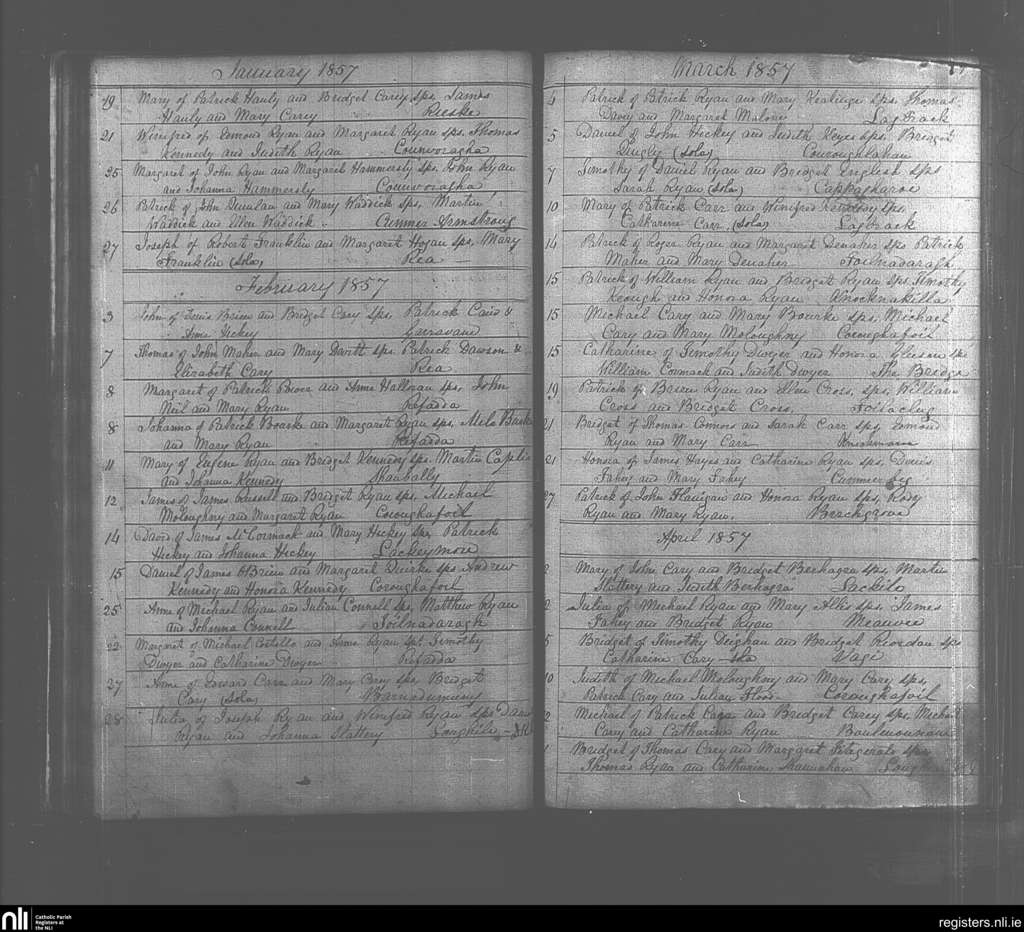 January 1857
19 Mary of Patrick Hanly and Bridget Carey sps. James
Hanly and Mary Carey Rieske
21 Winifred of Edmond Ryan and Margaret Ryan sps. Thomas
Kennedy and Judith Ryan Counvoragha
25 Margaret of John Ryan and Margaret Hammersly sps. John Ryan
and Johanna Hammersly Counvoragha
26 Patrick of John Quinlan and Mary Waddick sps. Martin
Waddick and Ellen Waddick Cummer Armstrong
27 Joseph of Robert Franklin and Margaret Hogan sps. Mary
Franklin (Sola) Rea
February 1857
3 John of Denis Brien and Bridget Cary sps. Patrick Cain &
Anne Hickey Guravane
7 Thomas of John Maher and Mary Davitt sps. Patrick Dawson &
Elizabeth Cary Rea
8 Margaret of Patrick and Anne Halloran sps. John
Neil and Mary Ryan Refadda
8 Johanna of Patrick Boarke and Margaret Ryan sps. Milo Burke
and Mary Ryan Refadda
11 Mary of Eugene Ryan and Bridget Kennedy sps. Martin Caplis
and Johanna Kennedy Shanbally
12 James of James Russell and Bridget Ryan sps. Michael
Moloughny and Margaret Ryan Coroughafoil
14 David of James McCormack and Mary Hickey sps. Patrick
Hickey and Johanna Hickey Lackeymore
15 Daniel of James OBrien and Margaret Quirke sps. Andrew
Kennedy and Honora Kennedy Coroughafoil
25 Anne of Michael Ryan and Julian Connell sps. Matthew Ryan
and Johanna Connell Foilnadaragh
22 Margaret of Michael Costello and Anne Ryan sps. Timothy
Dwyer and Catharine Dwyer Refadda
27 Anne of Edward Carr and Mary Cary sps. Bridget
Cary (Sola) Barnadumeny
28 Julia of Joseph Ryan and Winifred Ryan sps
Ryan and Johanna Slattery Loughile
March 1857
4 Patrick of Patrick Ryan and Mary Kealinge sps. Thomas
Davy and Margaret Malone Lagbrack
5 Daniel of John Hickey and Judith Keyes sps. Bridget
Quigly (Sola) Couroughlahan
7 Timothy of Daniel Ryan and Bridget English sps
Sarah Ryan (Sola) Cappaghrae
10 Mary of Patrick Carr and Winifred Kennedy sps.
Catharine Carr (Sola) Lagbrack
14 Patrick of Roger Ryan and Margaret Denaher sps Patrick
Maher and Mary Denaher Foilnadaragh
15 Patrick of William Ryan and Bridget Ryan sps. Timothy
Keough and Honora Ryan Knocknakilla
15 Michael Cary and Mary Bourke sps. Michael
Cary and Mary Moloughny Coroughafoil
15 Catharine of Timothy Dwyer and Honora Gleeson sps
William Cormack and Judith Dwyer The Bridge
19 Patrick of Brien Ryan and Ellen Cross, sps. William
Cross and Bridget Cross. Foilaclug
21 Bridget of Thomas Connors and Sarah Carr sps Edmond
Ryan and Mary Carr
21 Honora of James Hayes and Catharine Ryan sps. Denis
Fahey and Mary Fahey Cummer Beg
27 Patrick of John Flanigan and Honora Ryan sps. Rody
Ryan and Mary Ryan. Birchgrove
April 1857
2 Mary of John Cary and Bridget Berhagra sps. Martin
Slattery and Judith Berhagra Lackile
2 Julia of Michael Ryan and Mary Allis sps. James
Fahey and Bridget Ryan
5 Bridget of Timothy Deighan and Bridget Riordan sps
Catharine Cary Sola
10 Judith of Michael Moloughny and Mary Cary sps.
Patrick Cary and Julian Flood Coroughafoil
2 Michael of Patrick Cane and Bridget Carey sps. Michael
Cary and Catharine Ryan
Bridget of Thomas Cary and Margaret Fitzgerald sps
Thomas Ryan and Catharine Shannahan
nli
Catholic Parish
Registers at
the NLI
registers.nli.ie